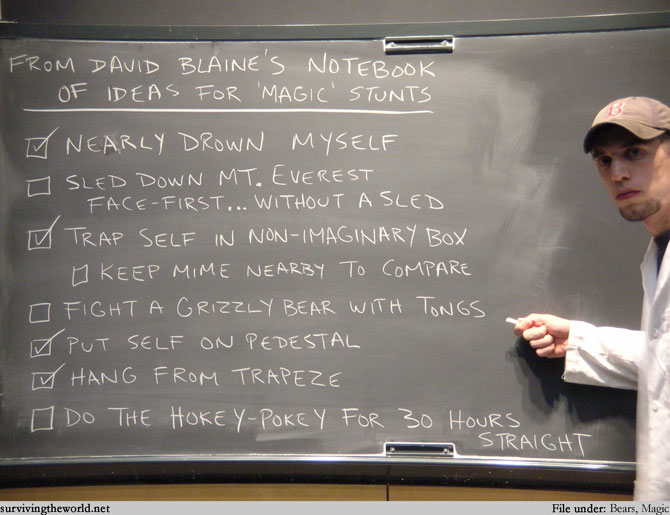 FROM DAVID BLAINE'S NOTEBOOK
OF IDEAS FOR 'MAGIC' STUNTS
NEARLY DROWN MYSELF
SLED DOWN MT. EVEREST
FACE-FIRST... WITHOUT A SLED
TRAP SELF IN NON-IMAGINARY BOX
KEEP MIME NEARBY TO COMPARE
FIGHT A GRIZZLY BEAR WITH TONGS
PUT SELF ON PEDESTAL
HANG FROM TRAPEZE
DO THE HOKEY-POKEY FOR 30 HOURS
STRAIGHT
B
survivingtheworld.net
File under: Bears, Magic